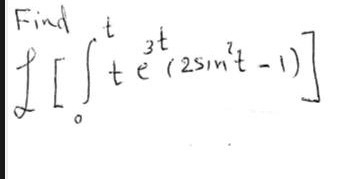 Find
ℒ [ ∫₀ᵗ t e³ᵗ (2sin²t - 1) ]